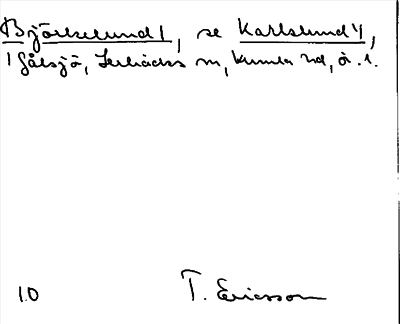 Björkelund 1, se Karlslund 4,
1 Gålsjö, Lerbäcks sn, Kumla hd, Ör. l.
10 T. Ericsson